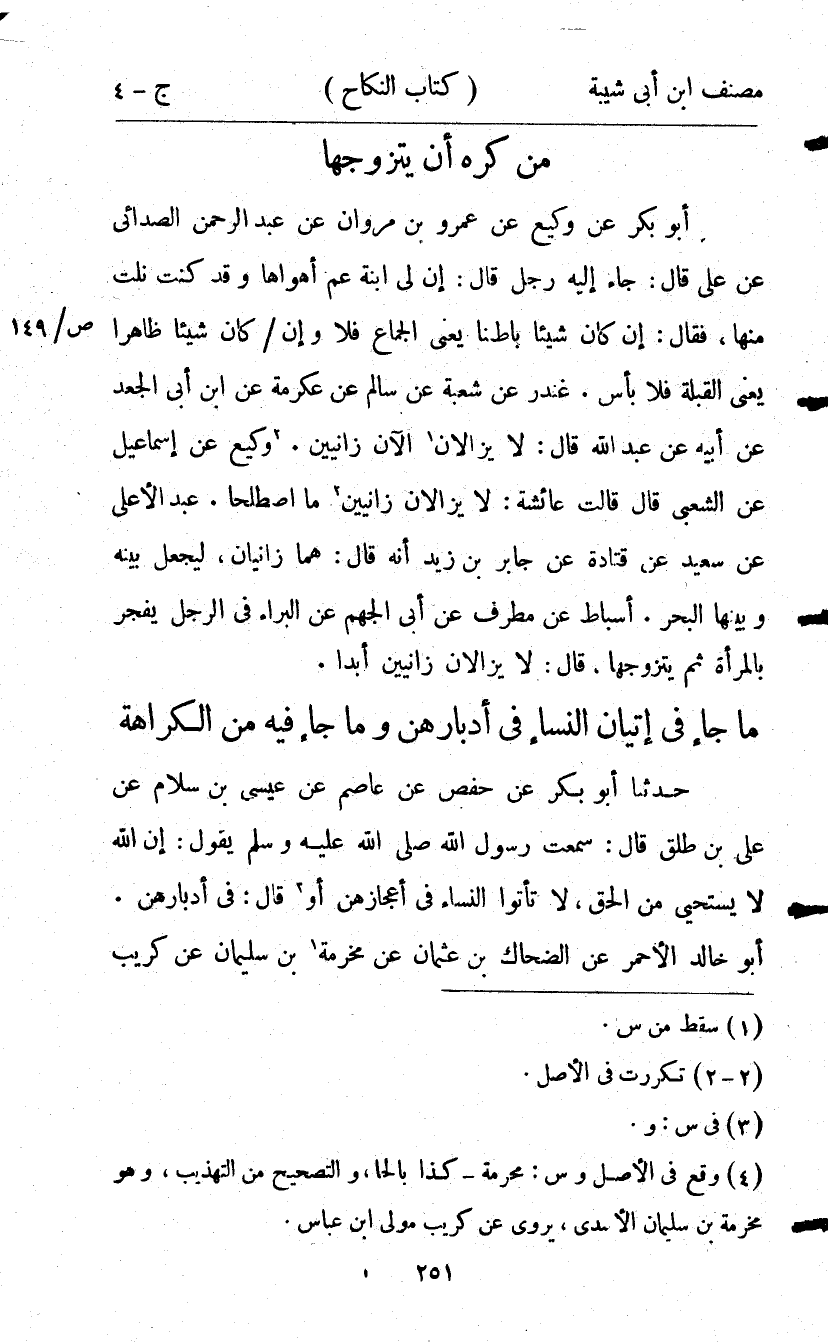 مصنف ابن أبى شيبة ( كتاب النكاح ) ج - ٤
من كره أن يتزوجها
أبو بكر عن وكيع عن عمرو بن مروان عن عبد الرحمن الصدائى
عن على قال : جاء إليه رجل قال : إن لى ابنة عم أهواها و قد كنت نلت
منها ، فقال : إن كان شيئا باطنا يعنى الجماع فلا و إن / كان شيئا ظاهرا ص / ١٤٩
يعنى القبلة فلا بأس . غندر عن شعبة عن سالم عن عكرمة عن ابن أبى الجعد
عن أبيه عن عبد الله قال : لا يزالان ١ الآن زانيين . ٢ وكيع عن إسماعيل
عن الشعبى قال قالت عائشة : لا يزالان زانيين ٢ ما اصطلحا . عبد الأعلى
عن سعيد عن قتادة عن جابر بن زيد أنه قال : هما زانيان ، ليجعل بينه
و بينها البحر . أسباط عن مطرف عن أبى الجهم عن البراء فى الرجل يفجر
بالمرأة ثم يتزوجها . قال : لا يزالان زانيين أبدا .
ما جاء فى إتيان النساء فى أدبارهن و ما جاء فيه من الكراهة
حدثنا أبو بكر عن حفص عن عاصم عن عيسى بن سلام عن
على بن طلق قال : سمعت رسول الله صلى الله عليه و سلم يقول : إن الله
لا يستحيى من الحق ، لا تأتوا النساء فى أعجازهن أو ٢ قال : فى أدبارهن .
أبو خالد الأحمر عن الضحاك بن عثمان عن مخرمة ١ بن سليمان عن كريب
(١) سقط من س .
(٢-٢) تكررت فى الأصل .
(٣) فى س : و .
(٤) وقع فى الأصل و س : محرمة - كذا بالحاء ، و التصحيح من التهذيب ، و هو
مخرمة بن سليمان الأسدى ، يروى عن كريب مولى ابن عباس .
٢٥١